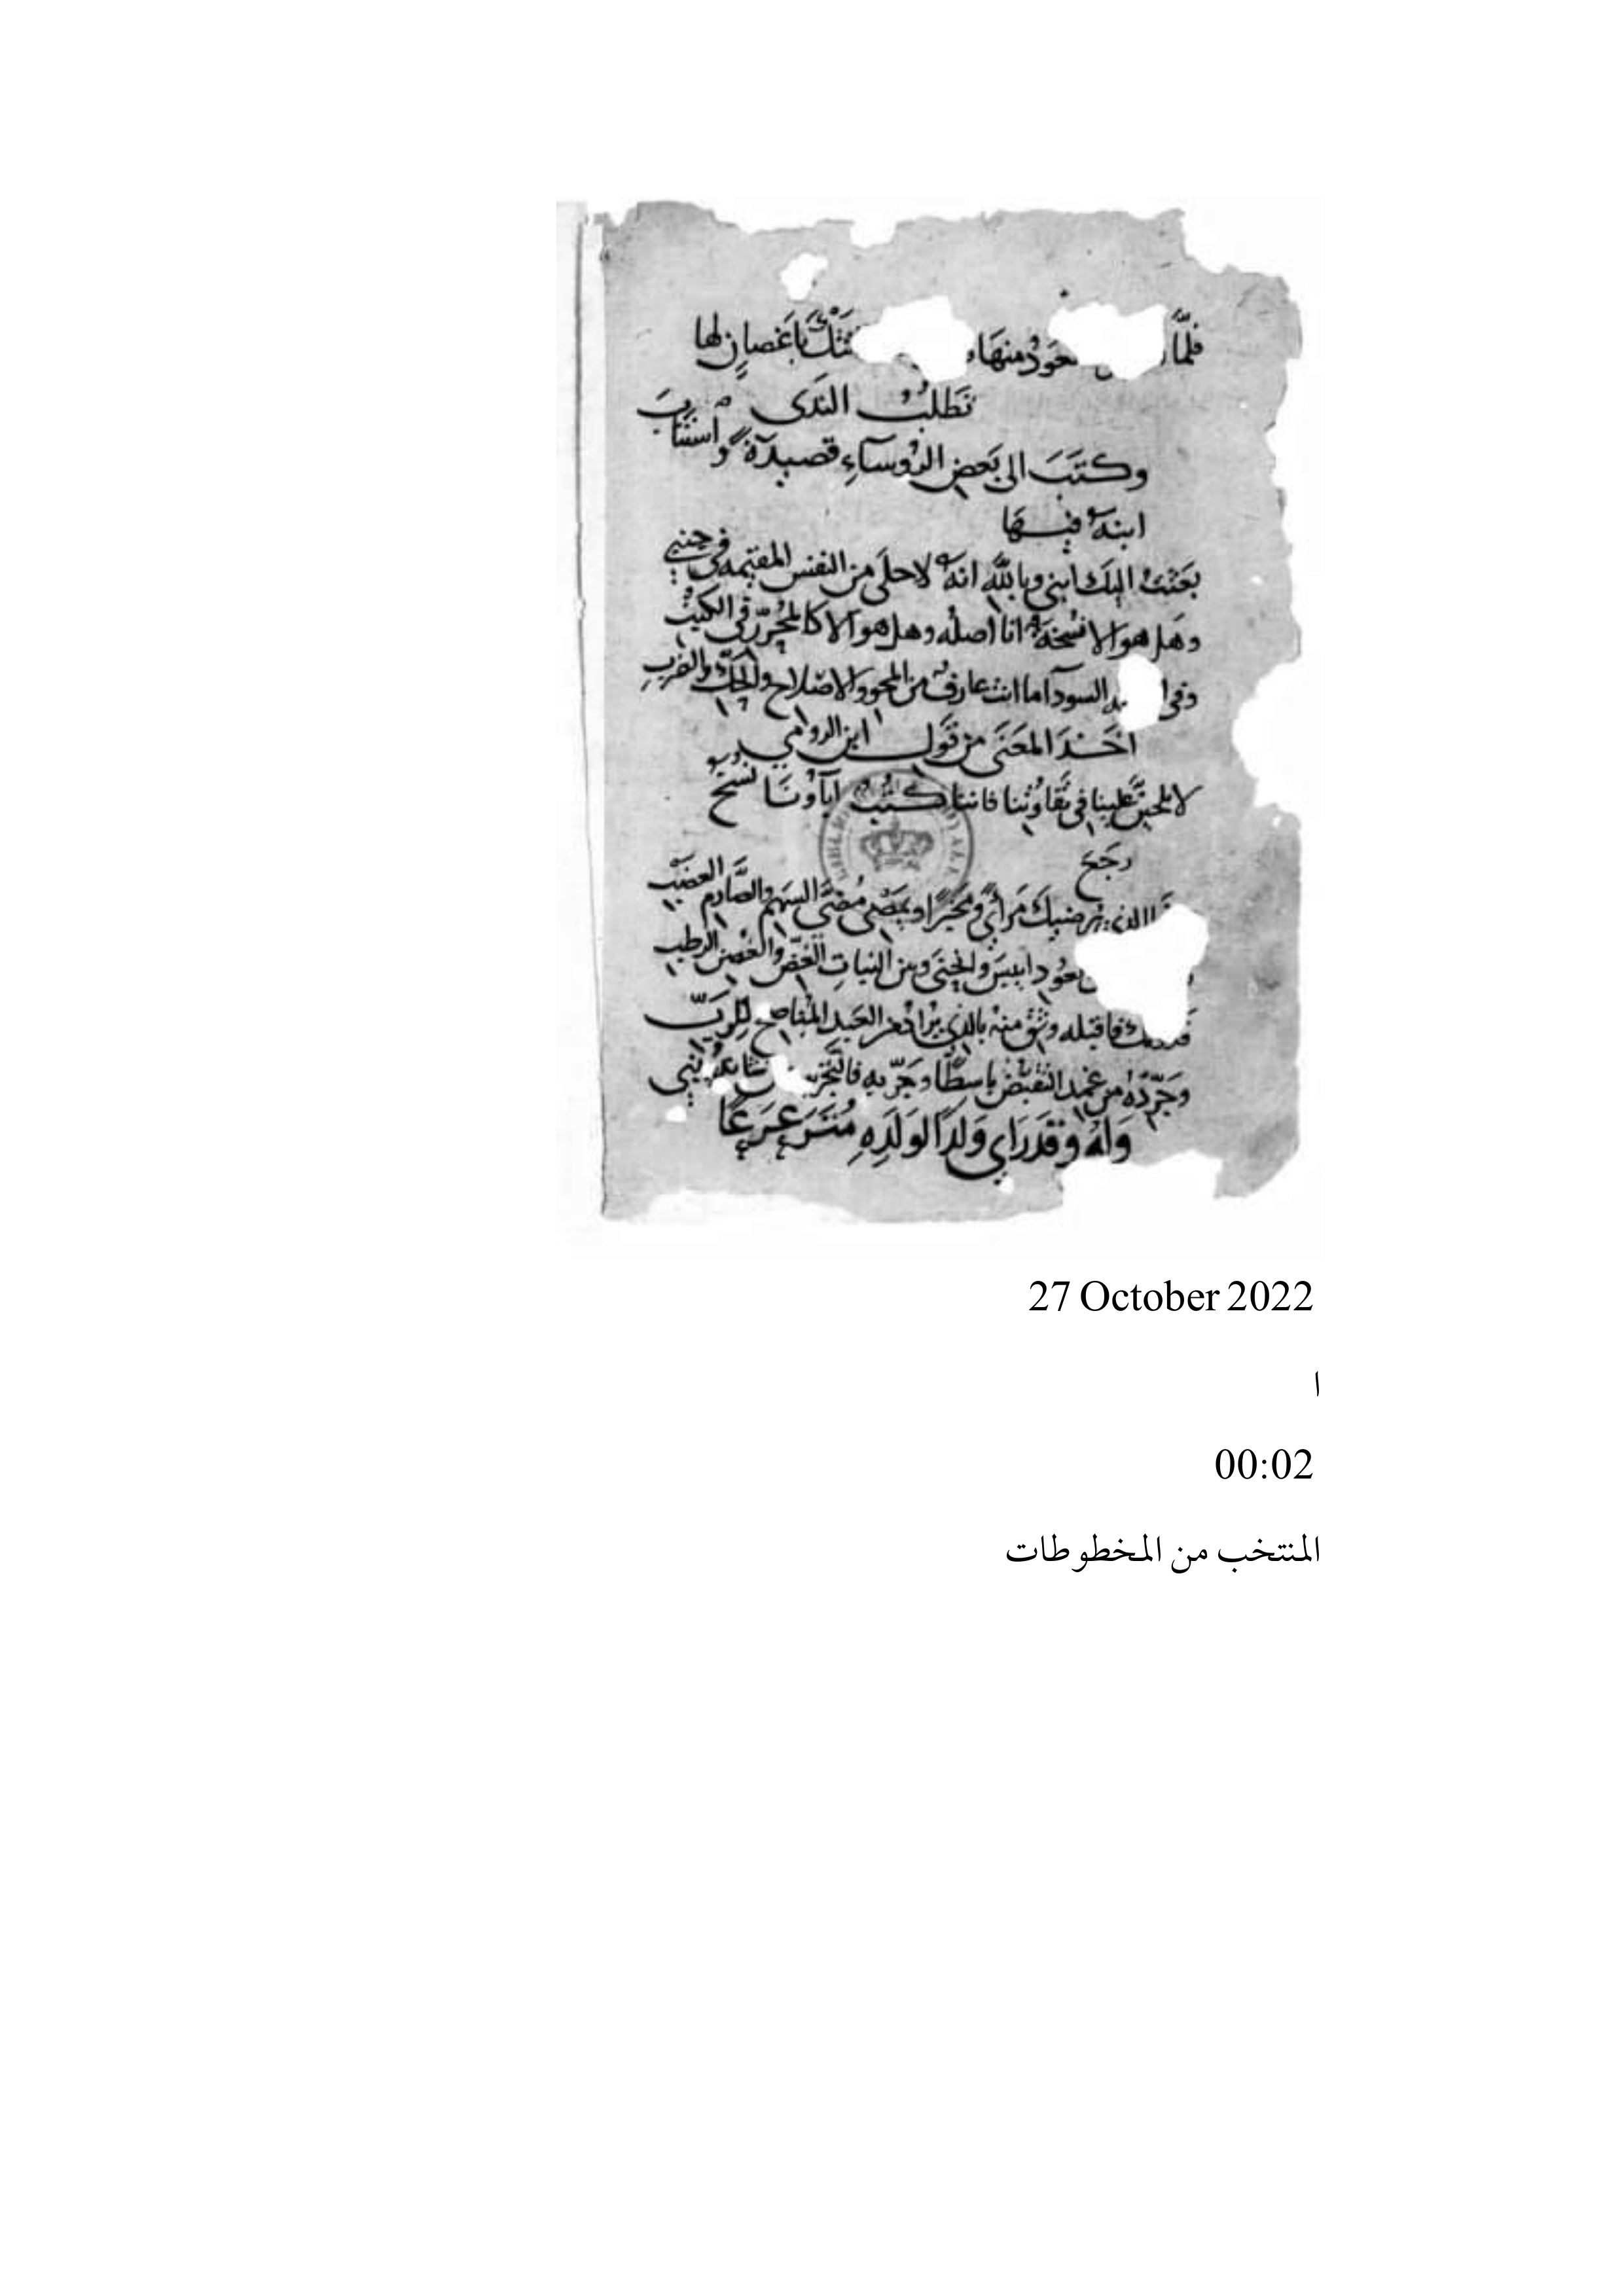 فلمّا عَوْد منها باغصانٍ لها
تطلبُ الندى
وكتَبَ الى بَعض الرؤساءِ قصيدةً واستنابَ
ابنهُ فيها
بعَثتُ اليكَ ابني وبالله انهُ لاحلَى من النفس المقيمه في جنبي
وهل هو الا نسخةٌ انا اصلُه وهل هو الا كالمحُرّر في الكتبِ
وفي السودآ اما انت عارفٌ من المحو والاصلاح والحكّ والضربِ
اخَذَ المعنَى من قول ابن الرومي
لا تلحينَّ علينا في تفاوُتنا فاننا كتبٌ آباؤنا نُسَخُ
رجَعَ
الذي يرضيك مَرأىً ومَخبرًا ويمضي مُضيَّ السهم والصَّارم العضب
بعُود ابيسَ والجنَى وبين النباتِ الغضّ والغُصن الرطب
فاقبله وثق منهُ بالذي يُرادُ من العَبد المُناصح للربّ
وجَرّدهُ من غمد التقبّض باسطًا وجَرّبه
وَلهُ وقَد رَاى وَلدًا لوَلَدِهِ مُتَرَعرَعًا
27 October 2022
ا
00:02
المنتخب من المخطوطات